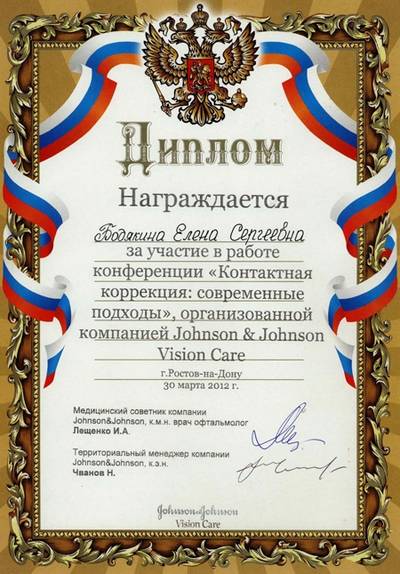 Диплом
Награждается
Бодякина Елена Сергеевна
за участие в работе
конференции «Контактная
коррекция: современные
подходы», организованной
компанией Johnson & Johnson
Vision Care
г.Ростов-на-Дону
30 марта 2012 г.
Медицинский советник компании
Johnson&Johnson, к.м.н. врач офтальмолог
Лещенко И.А.
Территориальный менеджер компании
Johnson&Johnson, к.э.н.
Чванов Н.
Johnson & Johnson
Vision Care